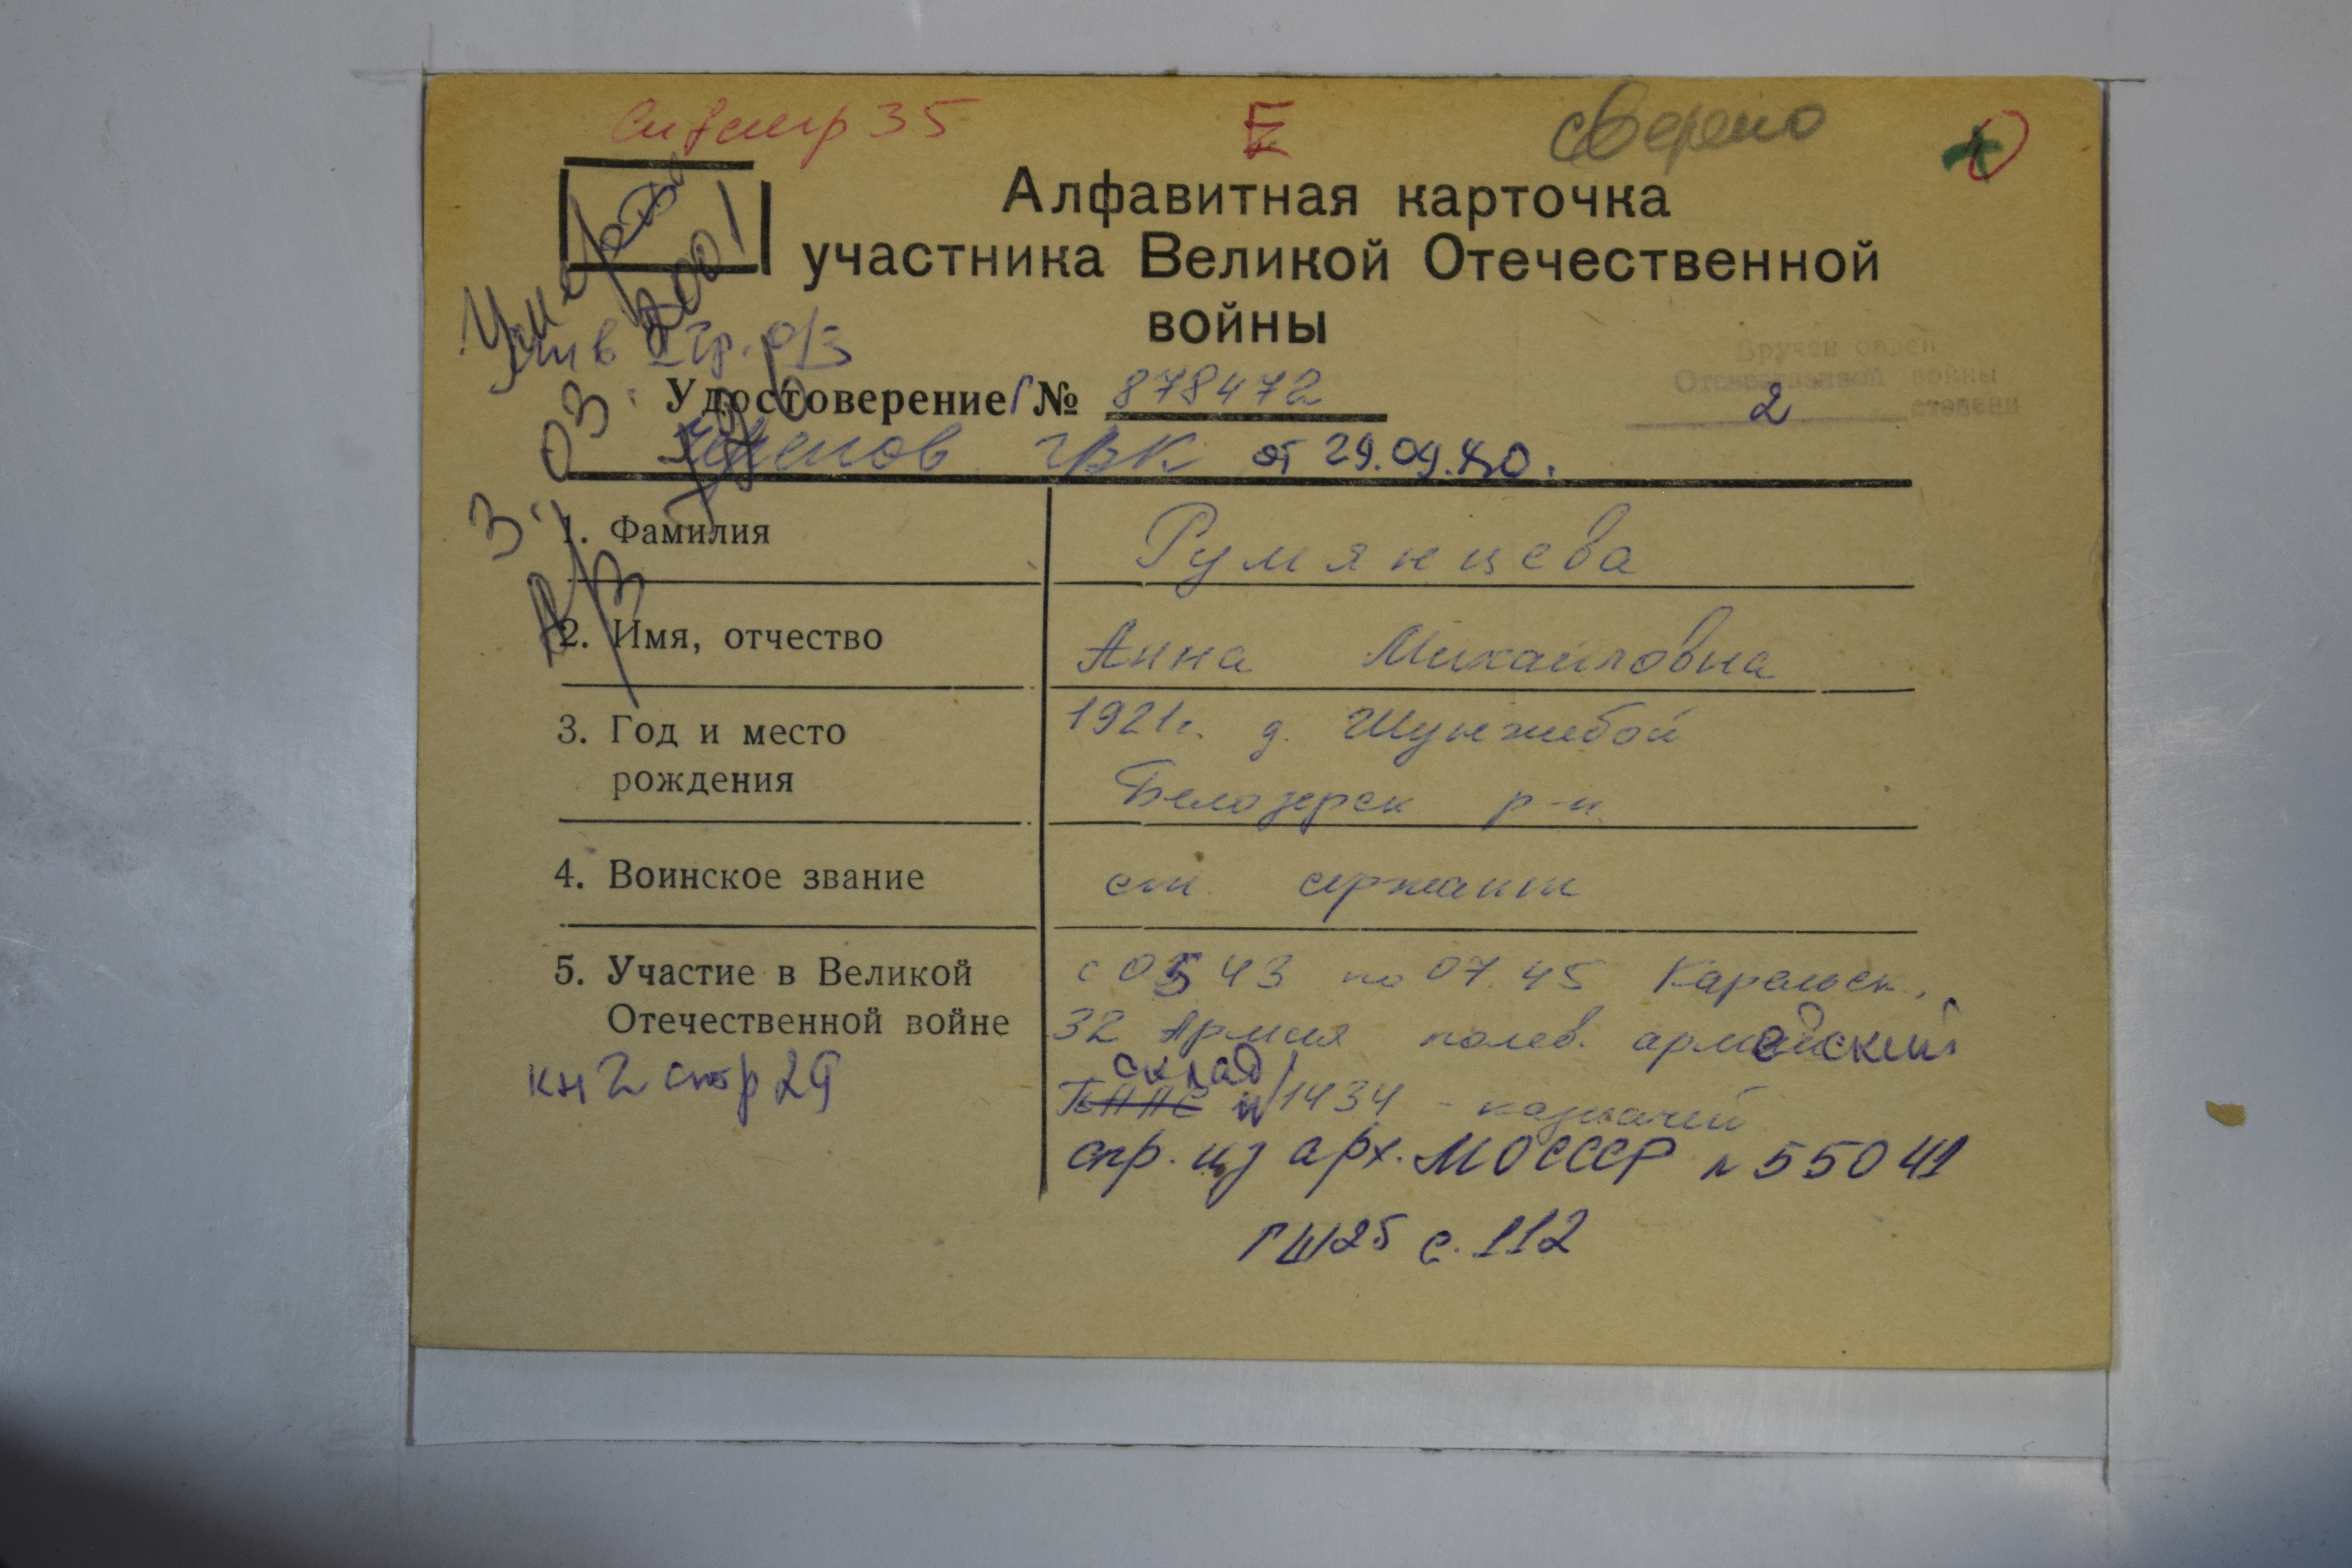 стр 35
Е
сверено
Алфавитная карточка
участника Великой Отечественной
войны
Умерла
2001
гр. 0/3
Вручен орден
Отечественной войны
2 степени
Удостоверение Г № 878472
Черепов ГВК от 29.09.80.
3.03.
1. Фамилия Румянцева
2. Имя, отчество Анна Михайловна
3. Год и место 1921г. д. Шунжебой
рождения Белозерск р-н
4. Воинское звание ст. сержант
5. Участие в Великой с 05 43 по 07.45 Карельск.
Отечественной войне 32 Армия полев. армейский
склад
кн 2 стр 29 1434 - казначей
спр. из арх. МО СССР № 55041
ГШ25 с. 112